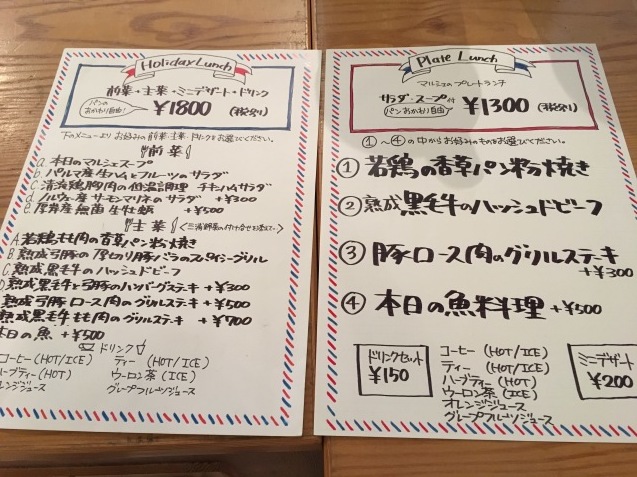 Holiday Lunch
前菜・主菜・ミニデザート・ドリンク
パンのおかわり自由!
¥1800 (税別)
下のメニューより お好みの 前菜・主菜・ドリンクをお選びください。
前菜
a. 本日のマルシェスープ
b. パルマ産生ハムとフルーツのサラダ
c. 清流鶏胸肉の低温調理 チキンハムサラダ
d. ノルウェー産サーモンマリネのサラダ +¥300
e. 厚岸産無菌生牡蠣 +¥500
主菜
A. 若鶏もも肉の香草パン粉焼き
B. 熟成弓豚の厚切り豚バラの
C. 熟成黒毛牛のハッシュドビーフ
熟成黒毛牛と弓豚のハンバーグステーキ +¥300
熟成弓豚 ロース肉のグリルステーキ +¥500
熟成黒毛牛もも肉のグリルステーキ +¥700
本日の魚 +¥500
ドリンク
コーヒー (HOT/ICE) ティー (HOT/ICE)
ハーブティー (HOT) ウーロン茶 (ICE)
オレンジジュース グレープフルーツジュース
Plate Lunch
マルシェのプレートランチ
サラダ・スープ付
パンおかわり自由
¥1300 (税別)
①〜④の中からお好みのものをお選びください。
① 若鶏の香草パン粉焼き
② 熟成黒毛牛のハッシュドビーフ
③ 豚ロース肉のグリルステーキ
+¥300
④ 本日の魚料理 +¥500
ドリンクセット
¥150
コーヒー (HOT/ICE)
ティー (HOT/ICE)
ハーブティー (HOT)
ウーロン茶 (ICE)
オレンジジュース
グレープフルーツジュース
ミニデザート
¥200